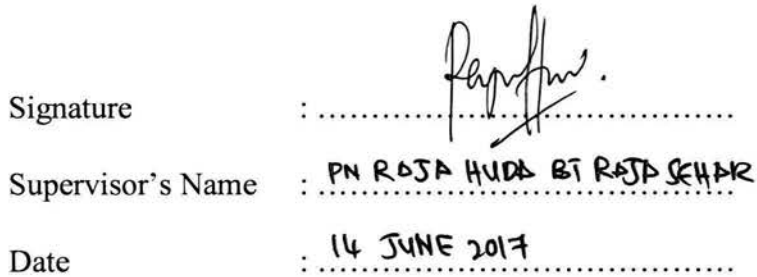 Signature : ..........................................
Supervisor's Name : PN RAJA HUDA BT RAJA SEHAR
Date : 14 JUNE 2017